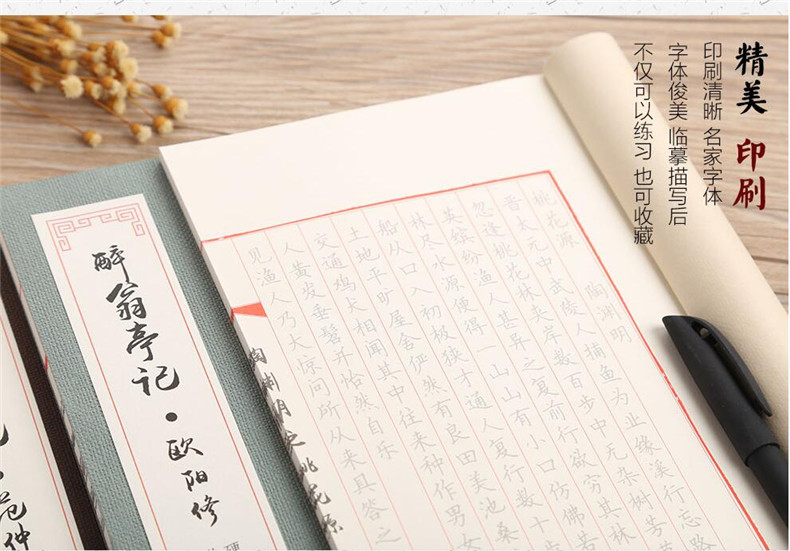 精美 印刷
印刷清晰 名家字体
字体俊美 临摹描写后
不仅可以练习 也可收藏
桃花源 陶渊明
晋太元中武陵人捕鱼为业缘溪行忘路
忽逢桃花林夹岸数百步中无杂树芳
英缤纷渔人甚异之复前行欲穷其林
林尽水源便得一山山有小口仿佛若
船从口入初极狭才通人复行数十
土地平旷屋舍俨然有良田美池桑
交通鸡犬相闻其中往来种作男女
人黄发垂髫并怡然自乐
见渔人乃大惊问所从来具答之
陶渊明之桃花源
醉翁亭记·欧阳修
范仲